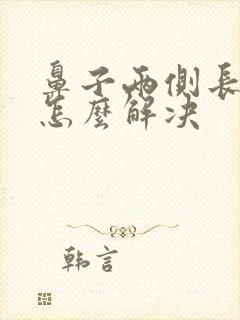 鼻子兩側長
怎麼解决
韩言